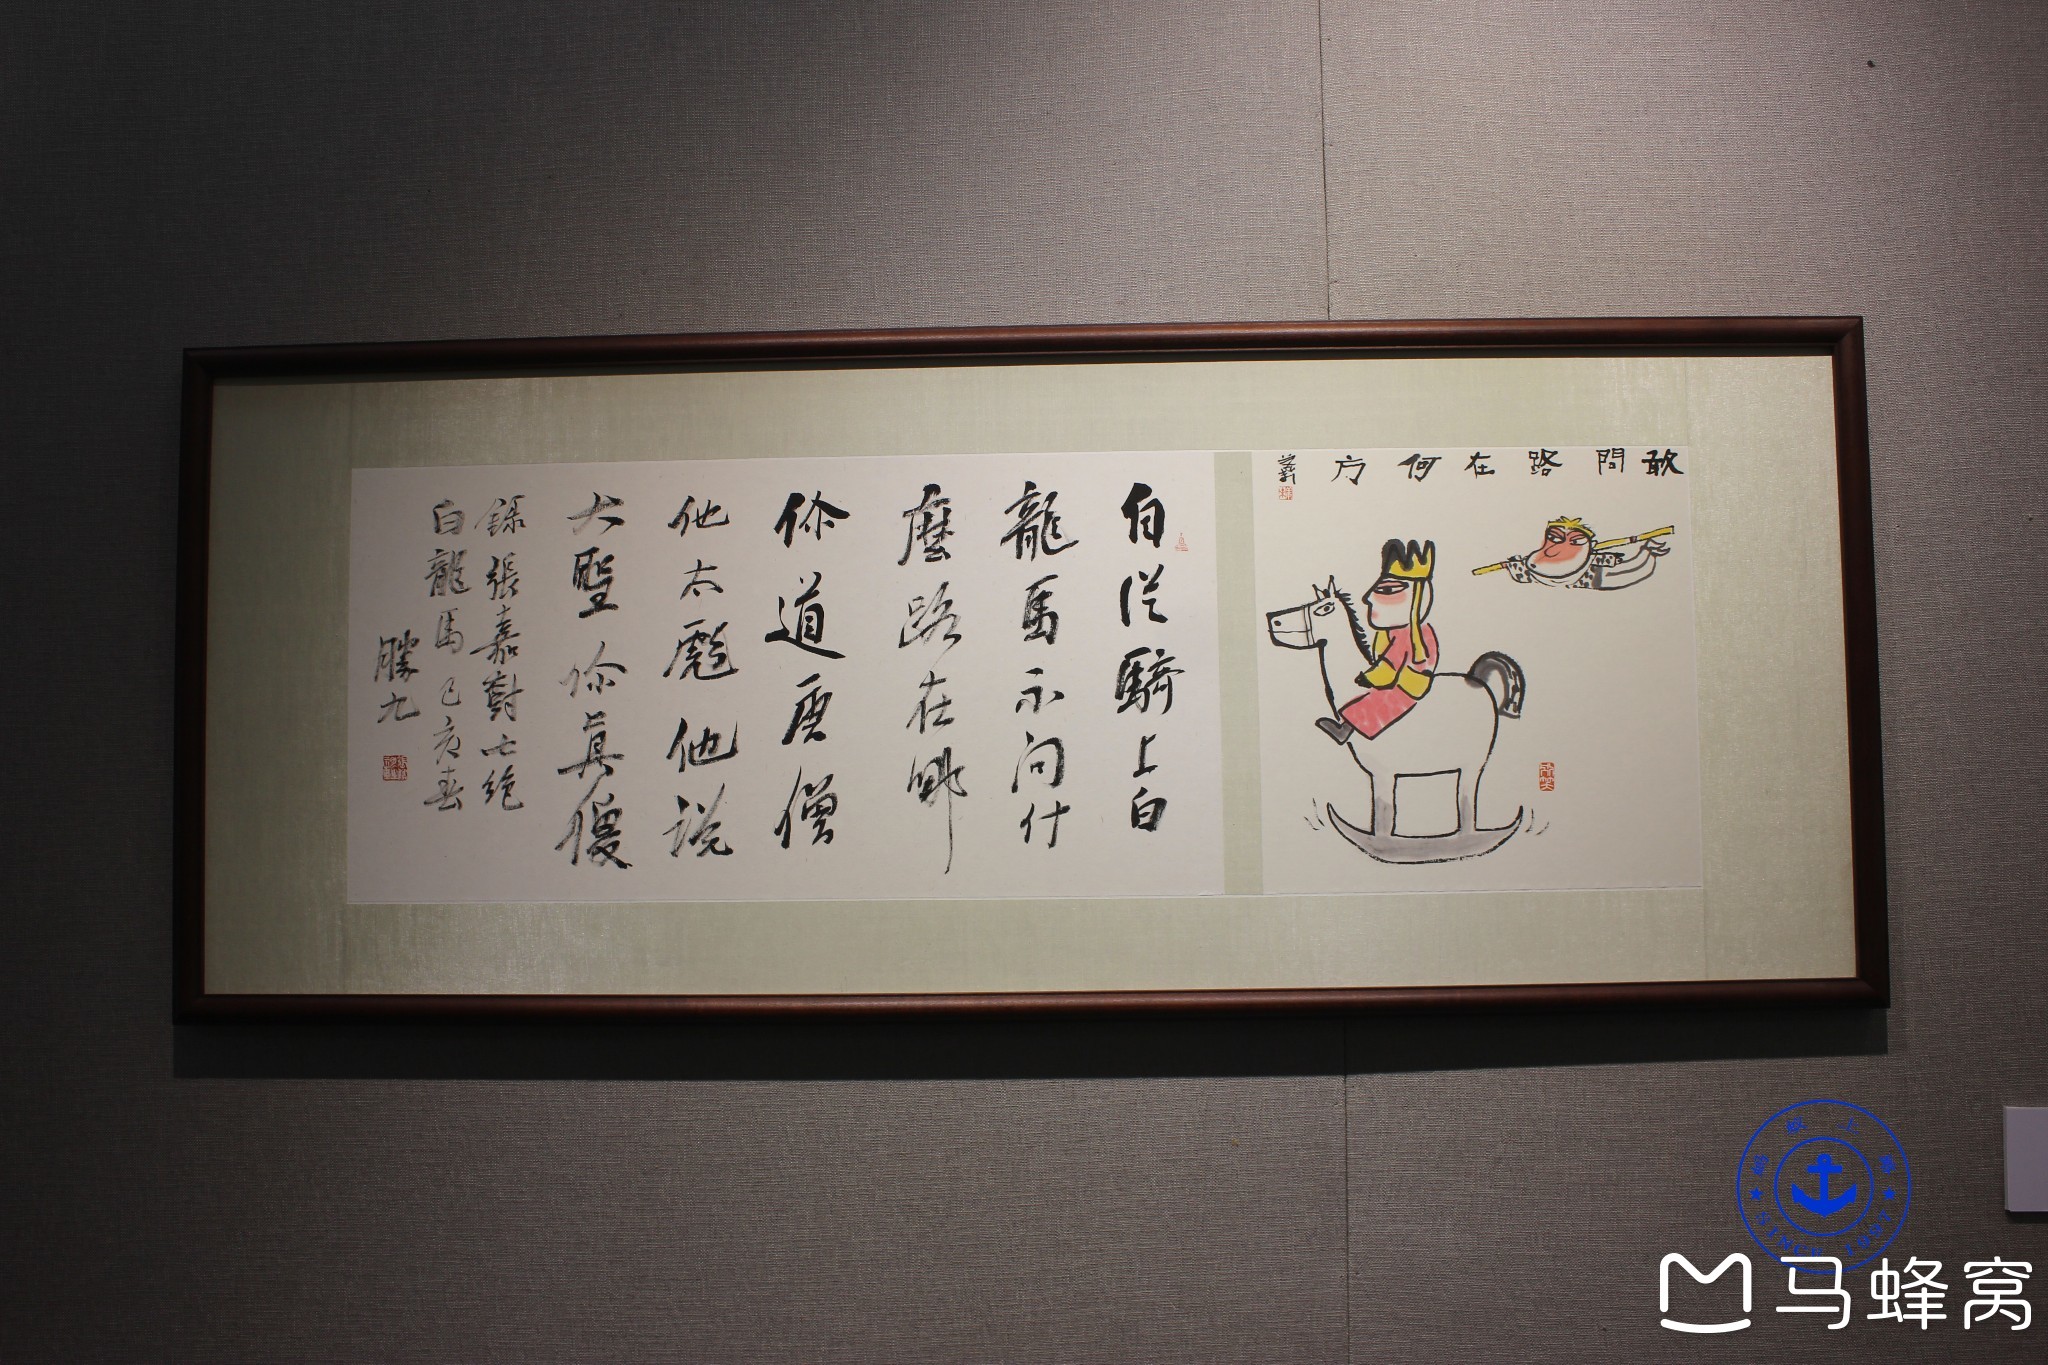 敢問路在何方
自從騎上白
龍馬不问什
麽路在哪
你道唐僧
他太彪他说
大聖你真傻
錄張嘉對七絕
白龍馬 己亥春
勝九
马蜂窝